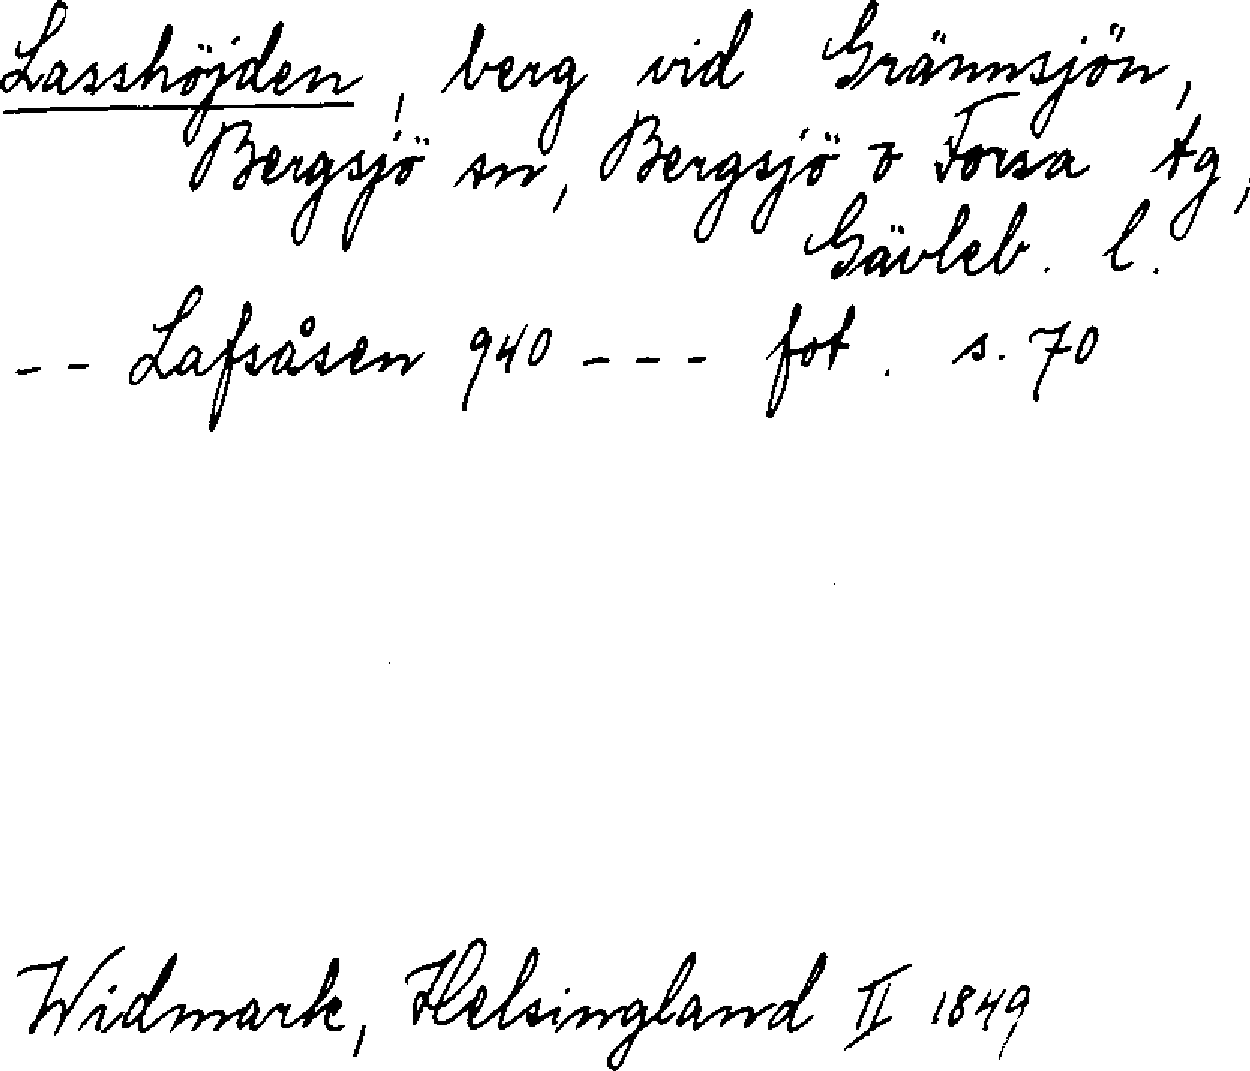 Lasshöjden, berg vid Grännsjön,
Bergsjö sn, Bergsjö o Forsa tg,
Gävleb. l.
-- Lafsåsen 940 --- fot. s. 70
Widmark, Helsingland II 1849